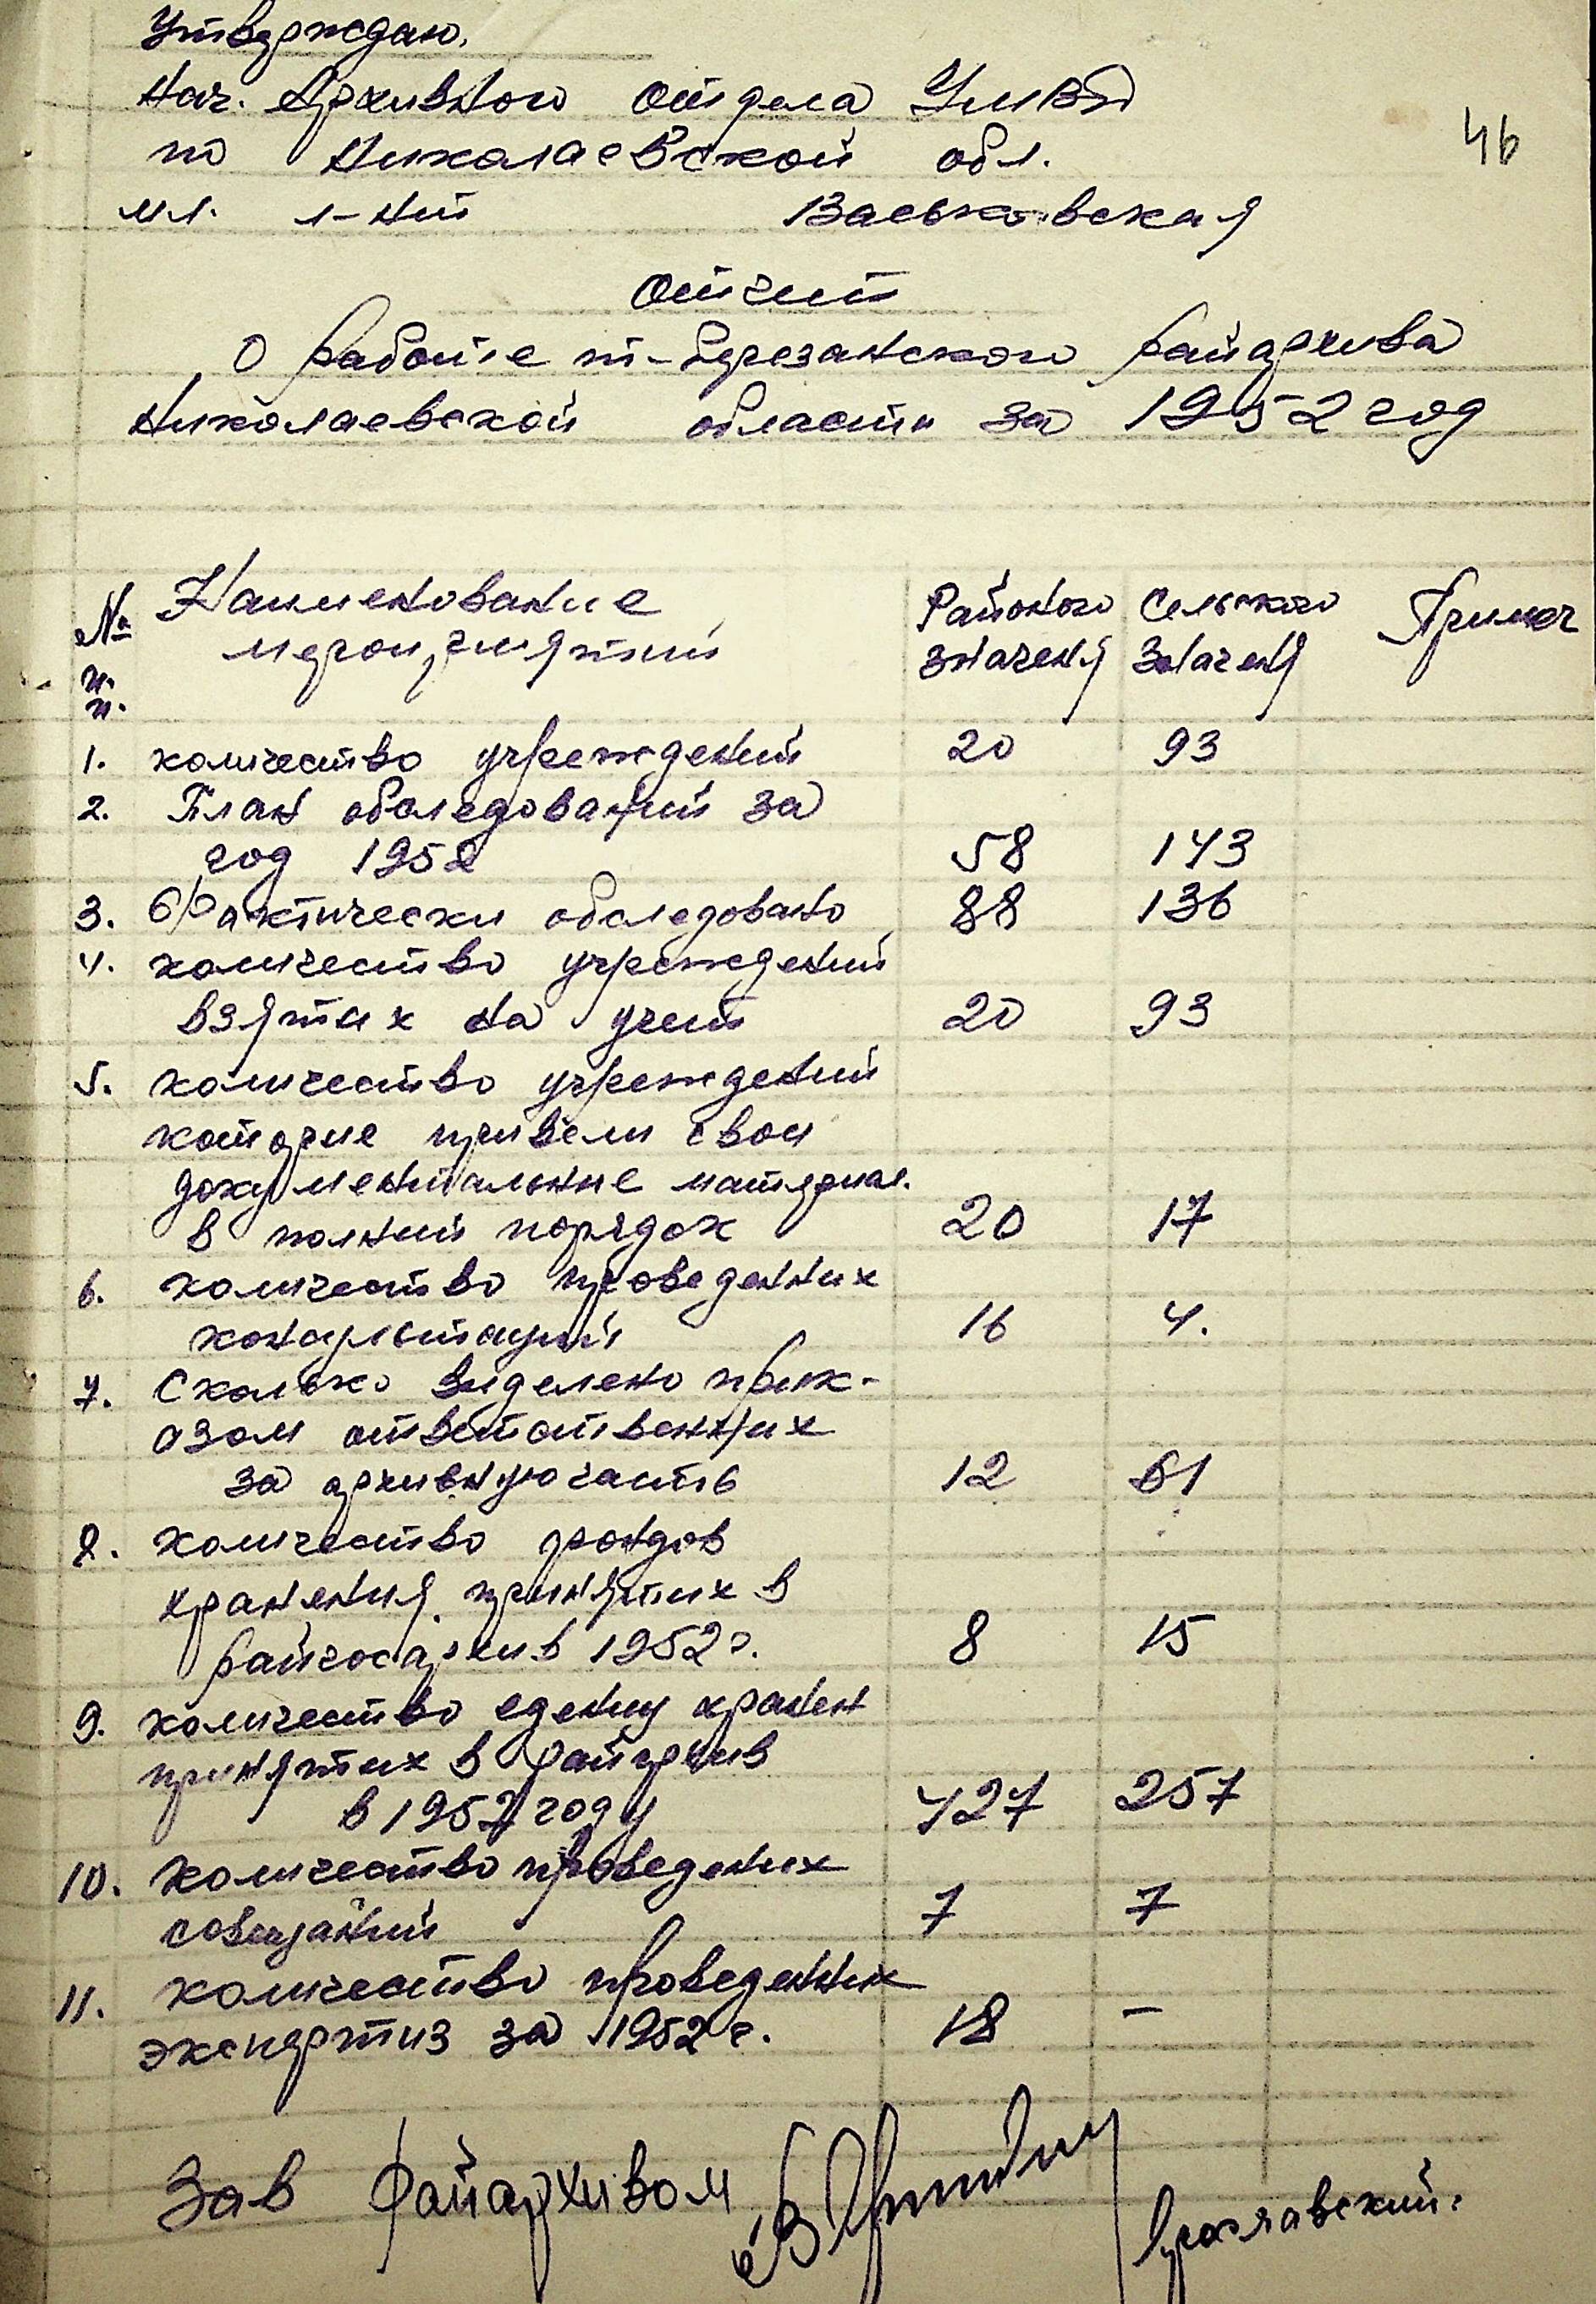 Утверждаю.
Нач. Архивного отдела УМВД
по Николаевской обл.
мл. л-нт Васьковская
46
Отчет
О работе т-Березанского райархива
Николаевской области за 1952 год
№ п. п. Наименование мероприятий Районого значеня Сельского значеня Примеч
1. количество учреждений 20 93
2. План обследований за
год 1952 58 143
3. Фактически обследовано 88 136
4. количество учреждений
взятих на учет 20 93
5. количество учреждений
которие привели свои
документальние материал.
в полний порядок 20 17
6. количество проведенних
консультаций 16 4.
7. Сколько виделено прик-
азом ответственних
за архивную часть 12 61
8. количество фондов
хранения принятих в
райгосархив 1952 г. 8 15
9. количество едениц хранен
принятих в райархив
в 1952 году 427 257
10. количество проведених
совещаний 7 7
11. количество проведенних
экспертиз за 1952 г. 18 –
Зав райархивом